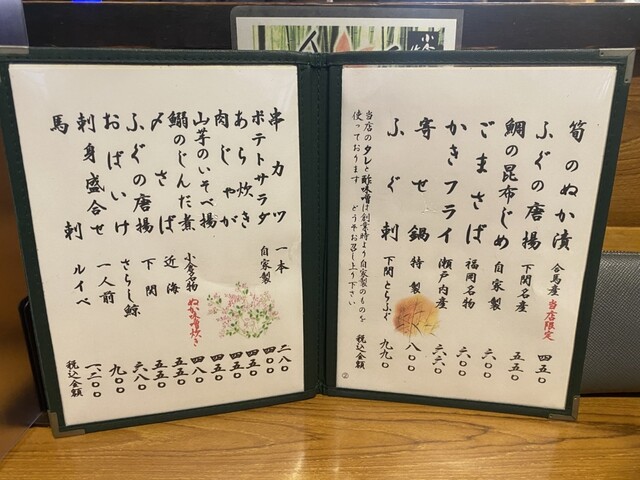 筍のぬか漬 合馬産 当店限定 四五〇
ふぐの唐揚 下関名産 五五〇
鯛の昆布じめ 自家製 六〇〇
ごまさば 福岡名物 六〇〇
かきフライ 瀬戸内産 六六〇
寄せ鍋 特製 八〇〇
ふぐ刺 下関とらふぐ 九九〇
税込金額
当店のタレと酢味噌は創業時より自家製のものを
使っております どうぞお召し上り下さい
②
串カツ 一本 二八〇
ポテトサラダ 自家製 四〇〇
あら炊き 五五〇
肉じゃが 五五〇
山芋のいそべ揚 四八〇
鰯のじんだ煮 小倉名物 ぬか味噌炊き 四八〇
〆さば 近海 五五〇
ふぐの唐揚 下関 五五〇
おばいけ さらし鯨 六八〇
刺身盛合せ 一人前
馬刺 ルイベ
税込金額